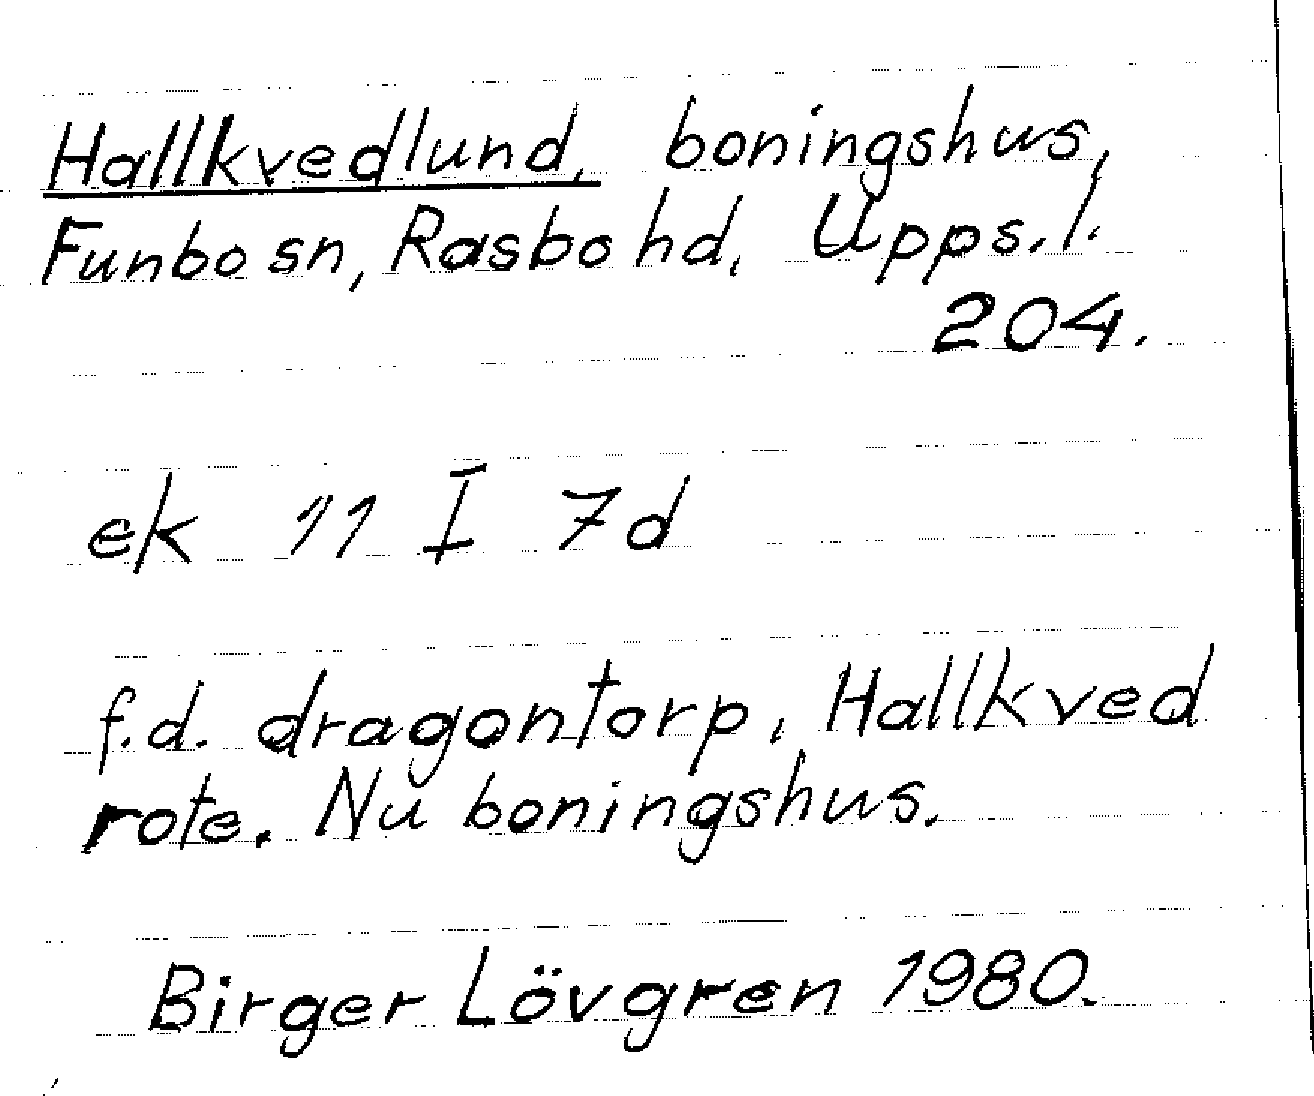 Hallkvedlund, boningshus,
Funbo sn, Rasbo hd, Upps. l.
204.
ek 11 I 7d
f.d. dragontorp, Hallkved
rote. Nu boningshus.
Birger Lövgren 1980.